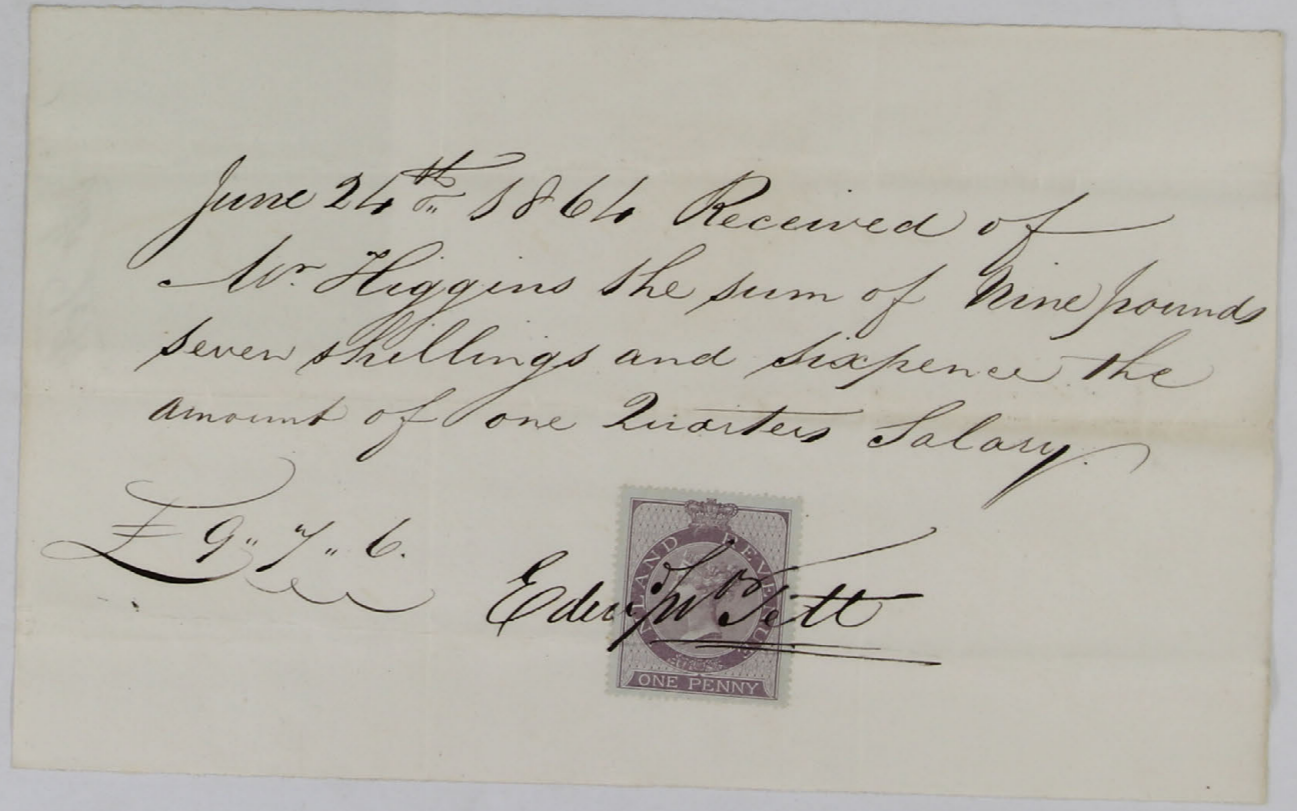 June 24th 1864 Received of
Mr. Higgins the sum of Nine pounds
seven shillings and sixpence the
amount of one Quarters Salary.
£9 " 7 " 6.
INLAND REVENUE
Edwd Tett
ONE PENNY